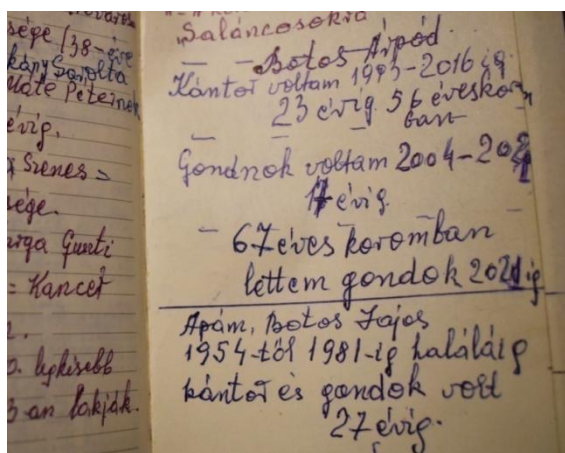 sége (38-éve
kánySarolta
Máté Péternek
évig.
Szenes =
sége.
Gunti
= Kancer
legkisebb
an lakják.
"Saláncosokra
Botos Árpád.
Kántor voltam 1993-2016 ig.
23 évig. 56 éveskorom
ban
Gondnok voltam 2004-2021
17 évig.
67 éves koromban
lettem gondok 2021 ig
Apám, Botos Lajos
1954-től 1981-ig haláláig
kántor és gondok volt
27 évig.